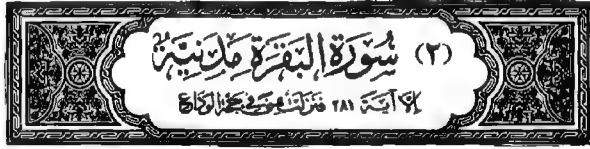 (٢) سُورَةُ الْبَقَرَةِ مَدَنِيَّةٌ
إِلَّا آيَةَ ٢٨١ فَنَزَلَتْ بِمِنًى فِي حَجَّةِ الْوَدَاعِ